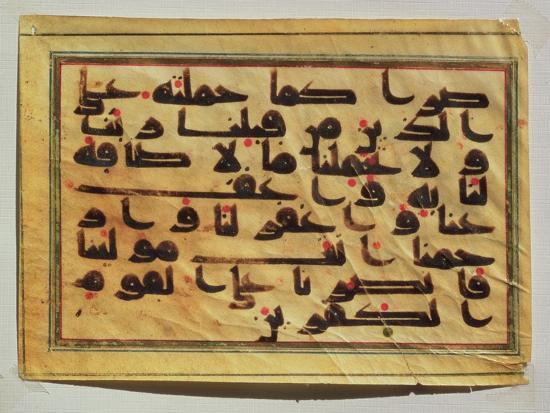 صرا كما حملته على
الذين من قبلنا ربنا
و لا تحملنا ما لا طاقة
لنا به و اعف
عنا و اغفر لنا و ار
حمنا انت مولينا
فانصرنا على القوم
الكفرين